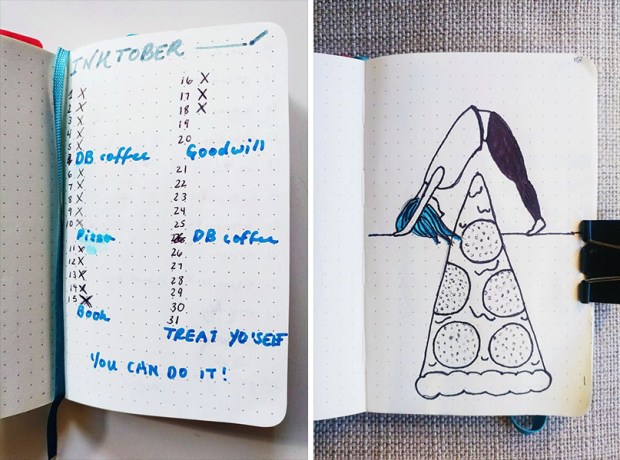 INKTOBER
1 X
2 X
3 X
4 X
5 X
DB coffee
6 X
7 X
8 X
9 X
10 X
Pizza
11 X
12 X
13 X
14 X
15 X
Book
16 X
17 X
18 X
19
20
Goodwill
21
22
23
24
25
DB coffee
26
27
28
29
30
31
TREAT YO'SELF
YOU CAN DO IT!